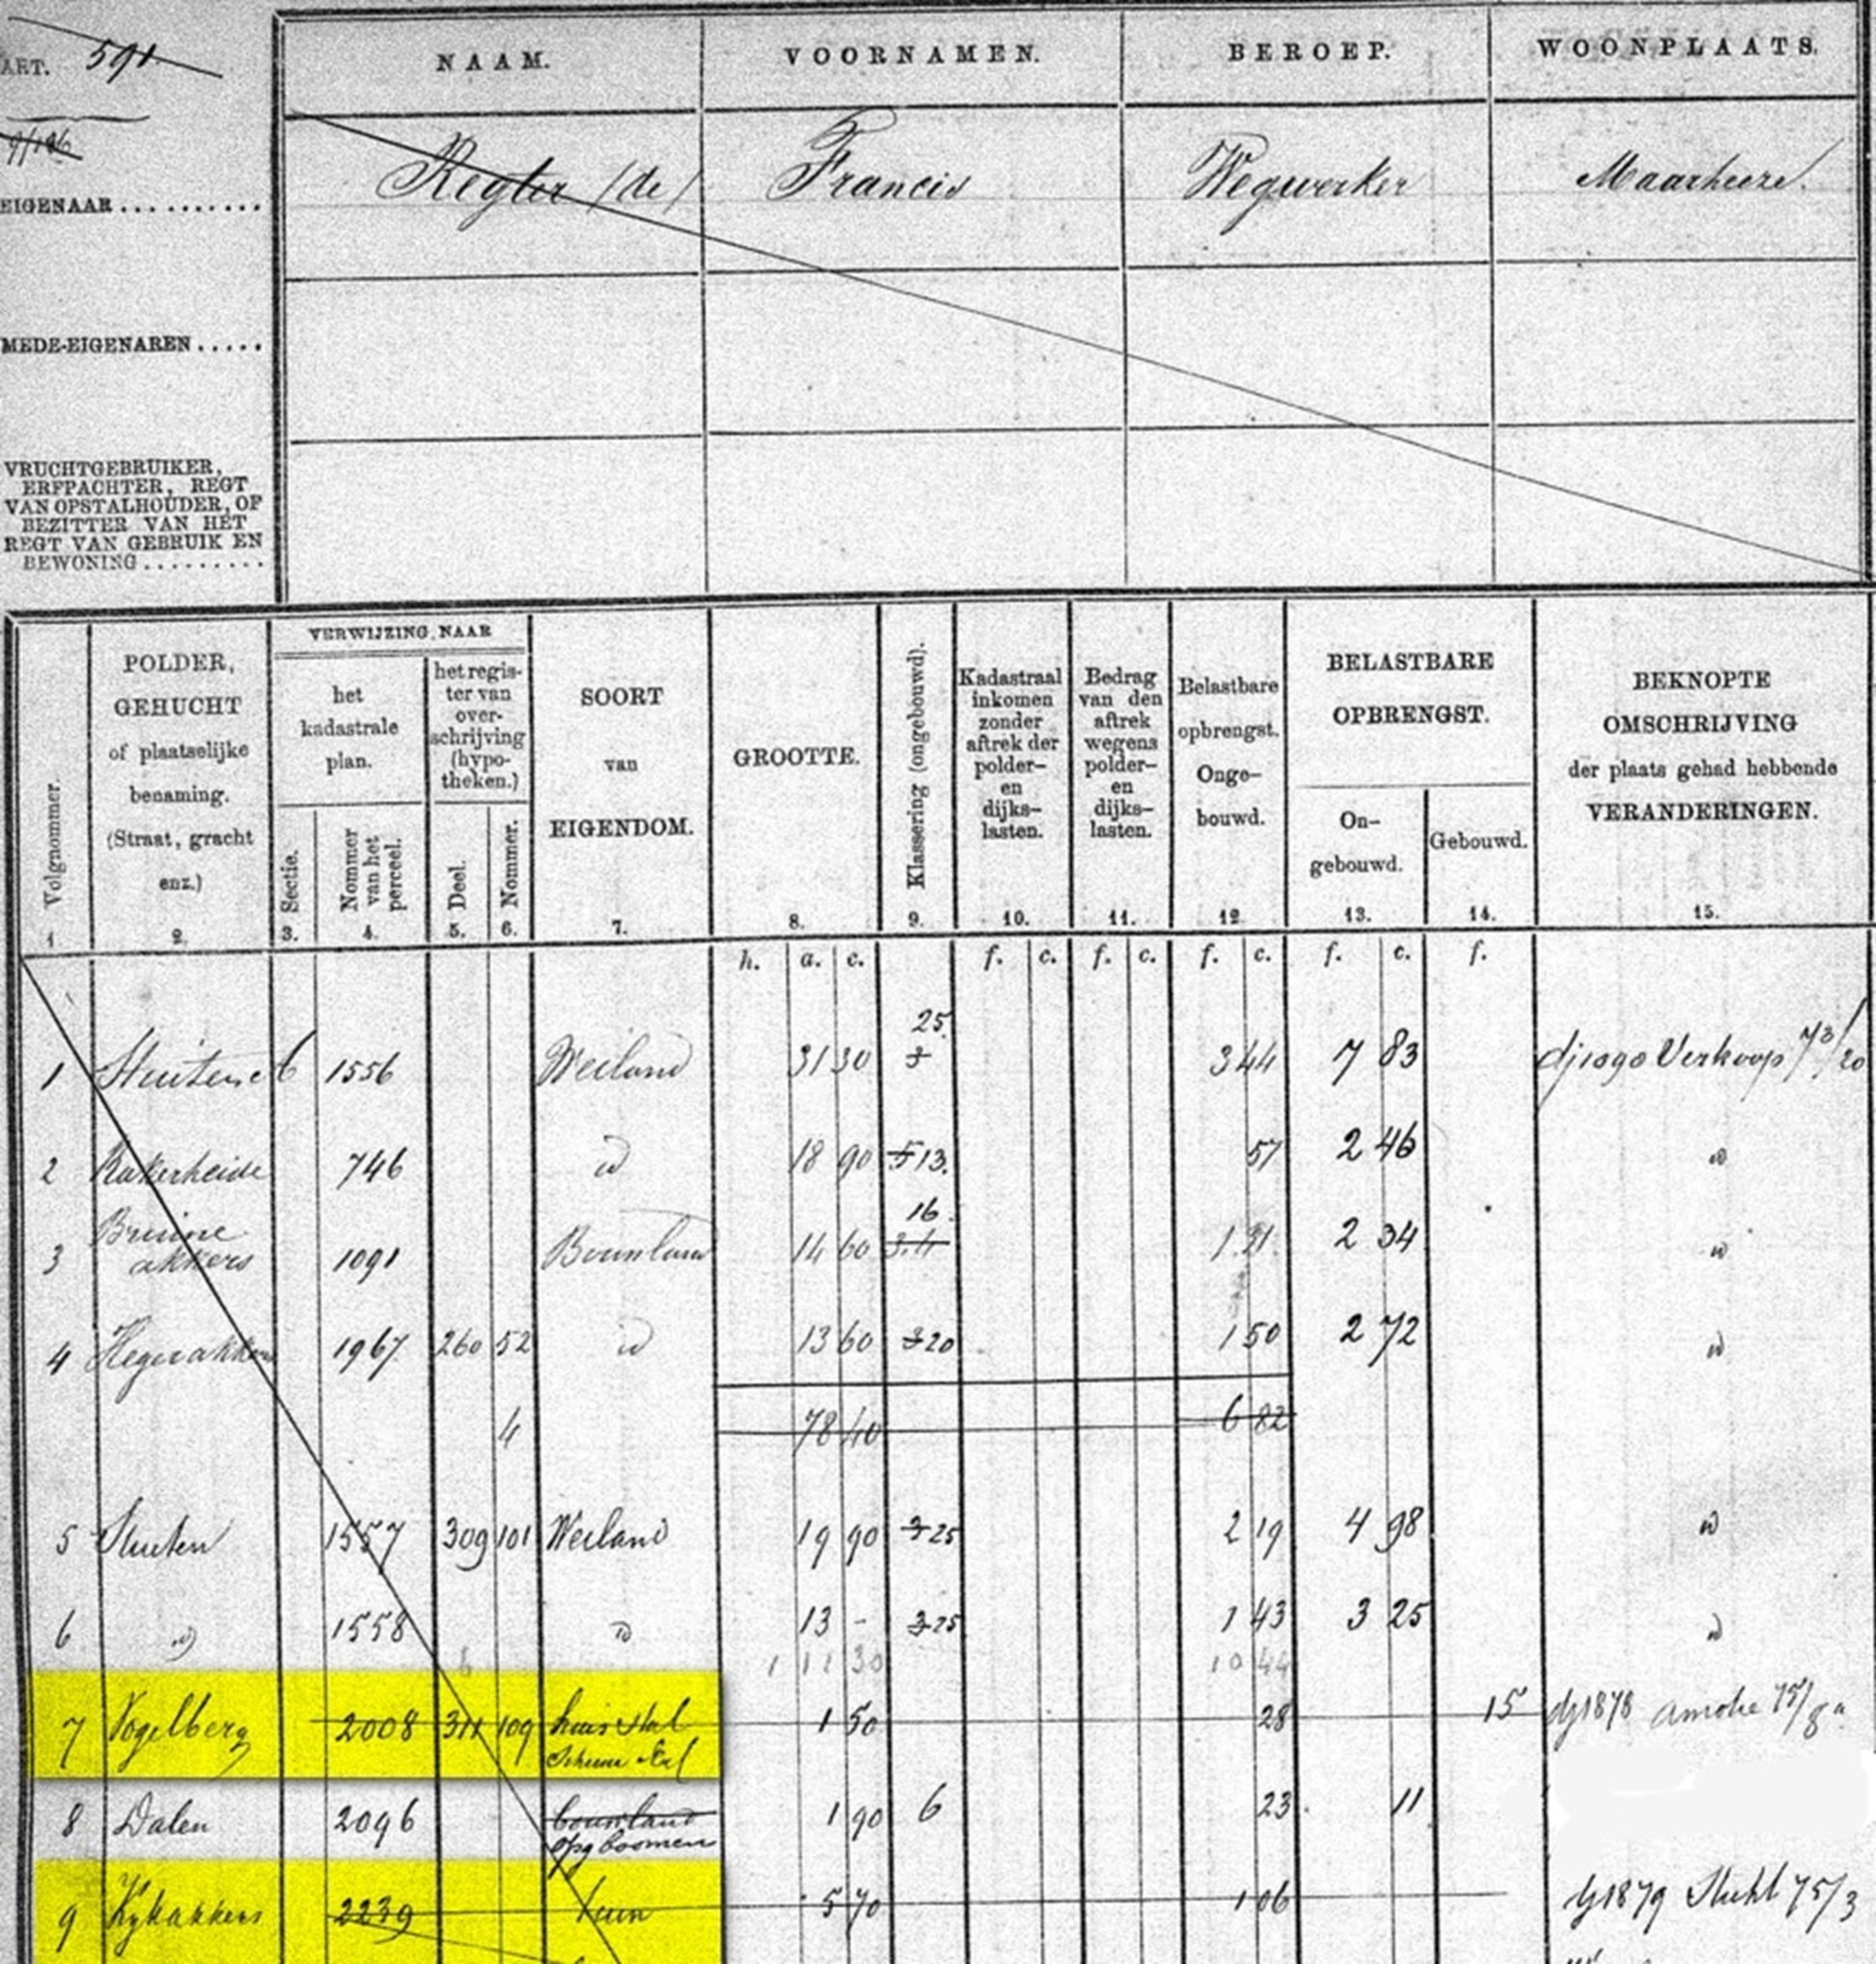 ART. 591
NAAM. VOORNAMEN. BEROEP. WOONPLAATS.
EIGENAAR.......... Regter (de) Francis Wegwerker Maarheeze.
MEDE-EIGENAREN.....
VRUCHTGEBRUIKER,
ERFPACHTER, REGT
VAN OPSTALHOUDER, OF
BEZITTER VAN HET
REGT VAN GEBRUIK EN
BEWONING.........
Volgnommer.
1
POLDER,
GEHUCHT
of plaatselijke
benaming.
(Straat, gracht
enz.)
2.
VERWIJZING NAAR
het
kadastrale
plan.
Sectie.
3.
Nommer
van het
perceel.
4.
het regis-
ter van
over-
schrijving
(hypo-
theken.)
Deel.
5.
Nommer.
6.
SOORT
van
EIGENDOM.
7.
GROOTTE.
8.
Klasseering (ongebouwd).
9.
Kadastraal
inkomen
zonder
aftrek der
polder-
en
dijks-
lasten.
10.
Bedrag
van den
aftrek
wegens
polder-
en
dijks-
lasten.
11.
Belastbare
opbrengst.
Onge-
bouwd.
12.
BELASTBARE
OPBRENGST.
On-
gebouwd.
13.
Gebouwd.
14.
BEKNOPTE
OMSCHRIJVING
der plaats gehad hebbende
VERANDERINGEN.
15.
h. a. c. f. c. f. c. f. c. f. c. f.
25
1 1556 Weiland 31 30 3 3 44 7 83 dj1090 Verkoop 73/20
2 746 id 18 90 5 13. 57 2 46 id
16
3 Bruine akkers 1091 Bouwland 14 60 3.4 1 21 2 34 id
4 1967 260 52 id 13 60 3 20 1 50 2 72 id
4 78 40 6 82
5 Stuten 1557 309 101 Weiland 19 90 3 25 2 19 4 98 id
6 id 1558 id 13 - 3 25 1 43 3 25 id
6 1 11 30 10 44
7 Vogelberg 2008 311 109 huis stal 1 50 28 15 dj1878 75/8
8 Dalen 2096 bouwland 1 90 6 23 11
opg boomen
9 Kykakkers 2239 tuin 5 70 1 06 dj1879 75/3